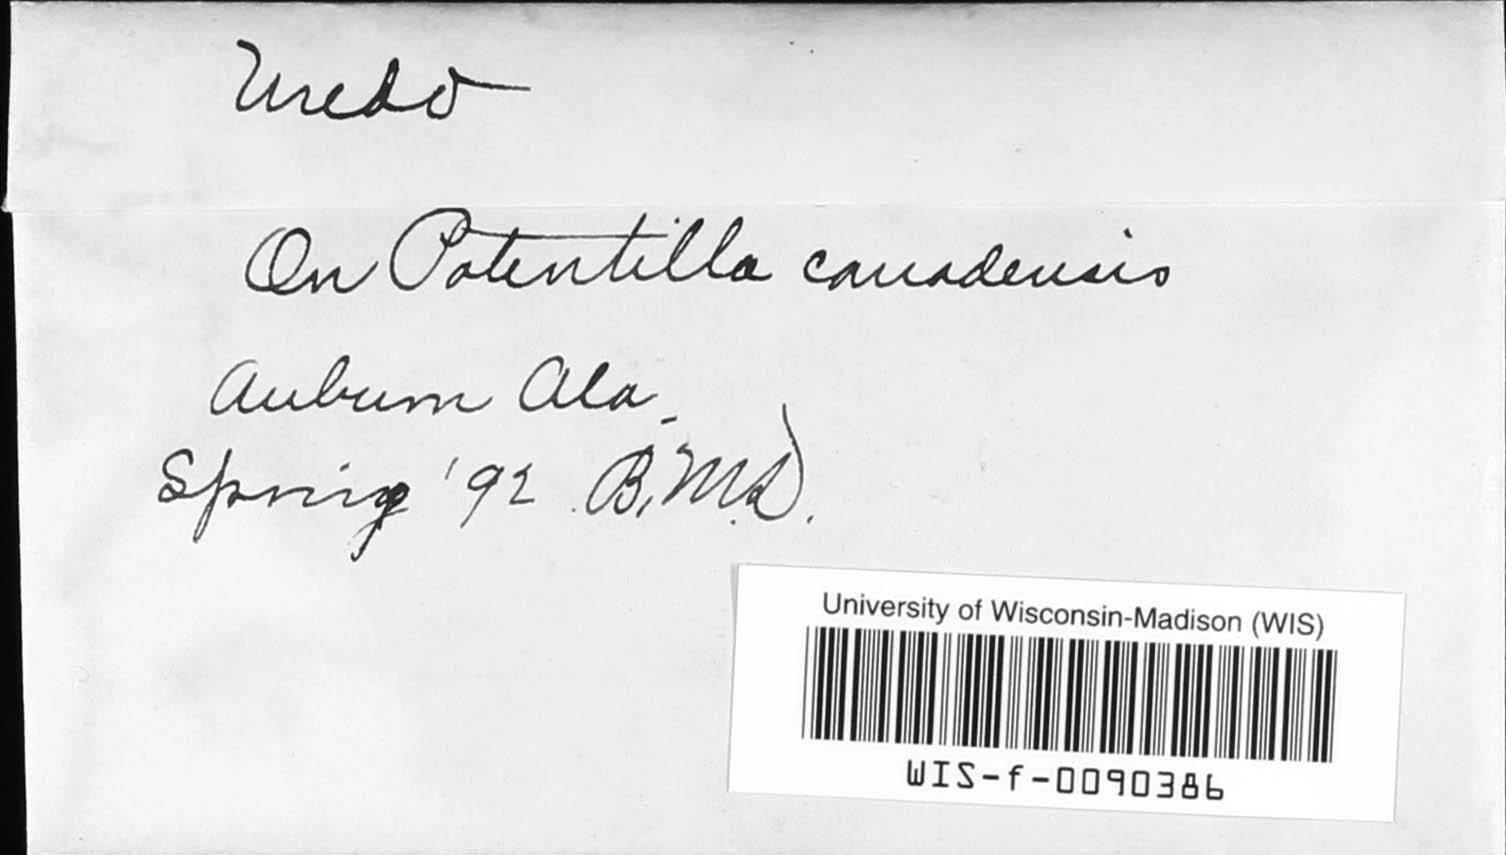 Uredo
On Potentilla canadensis
Auburn Ala.
Spring '92 B.M.D.
University of Wisconsin-Madison (WIS)
WIS-f-0090386